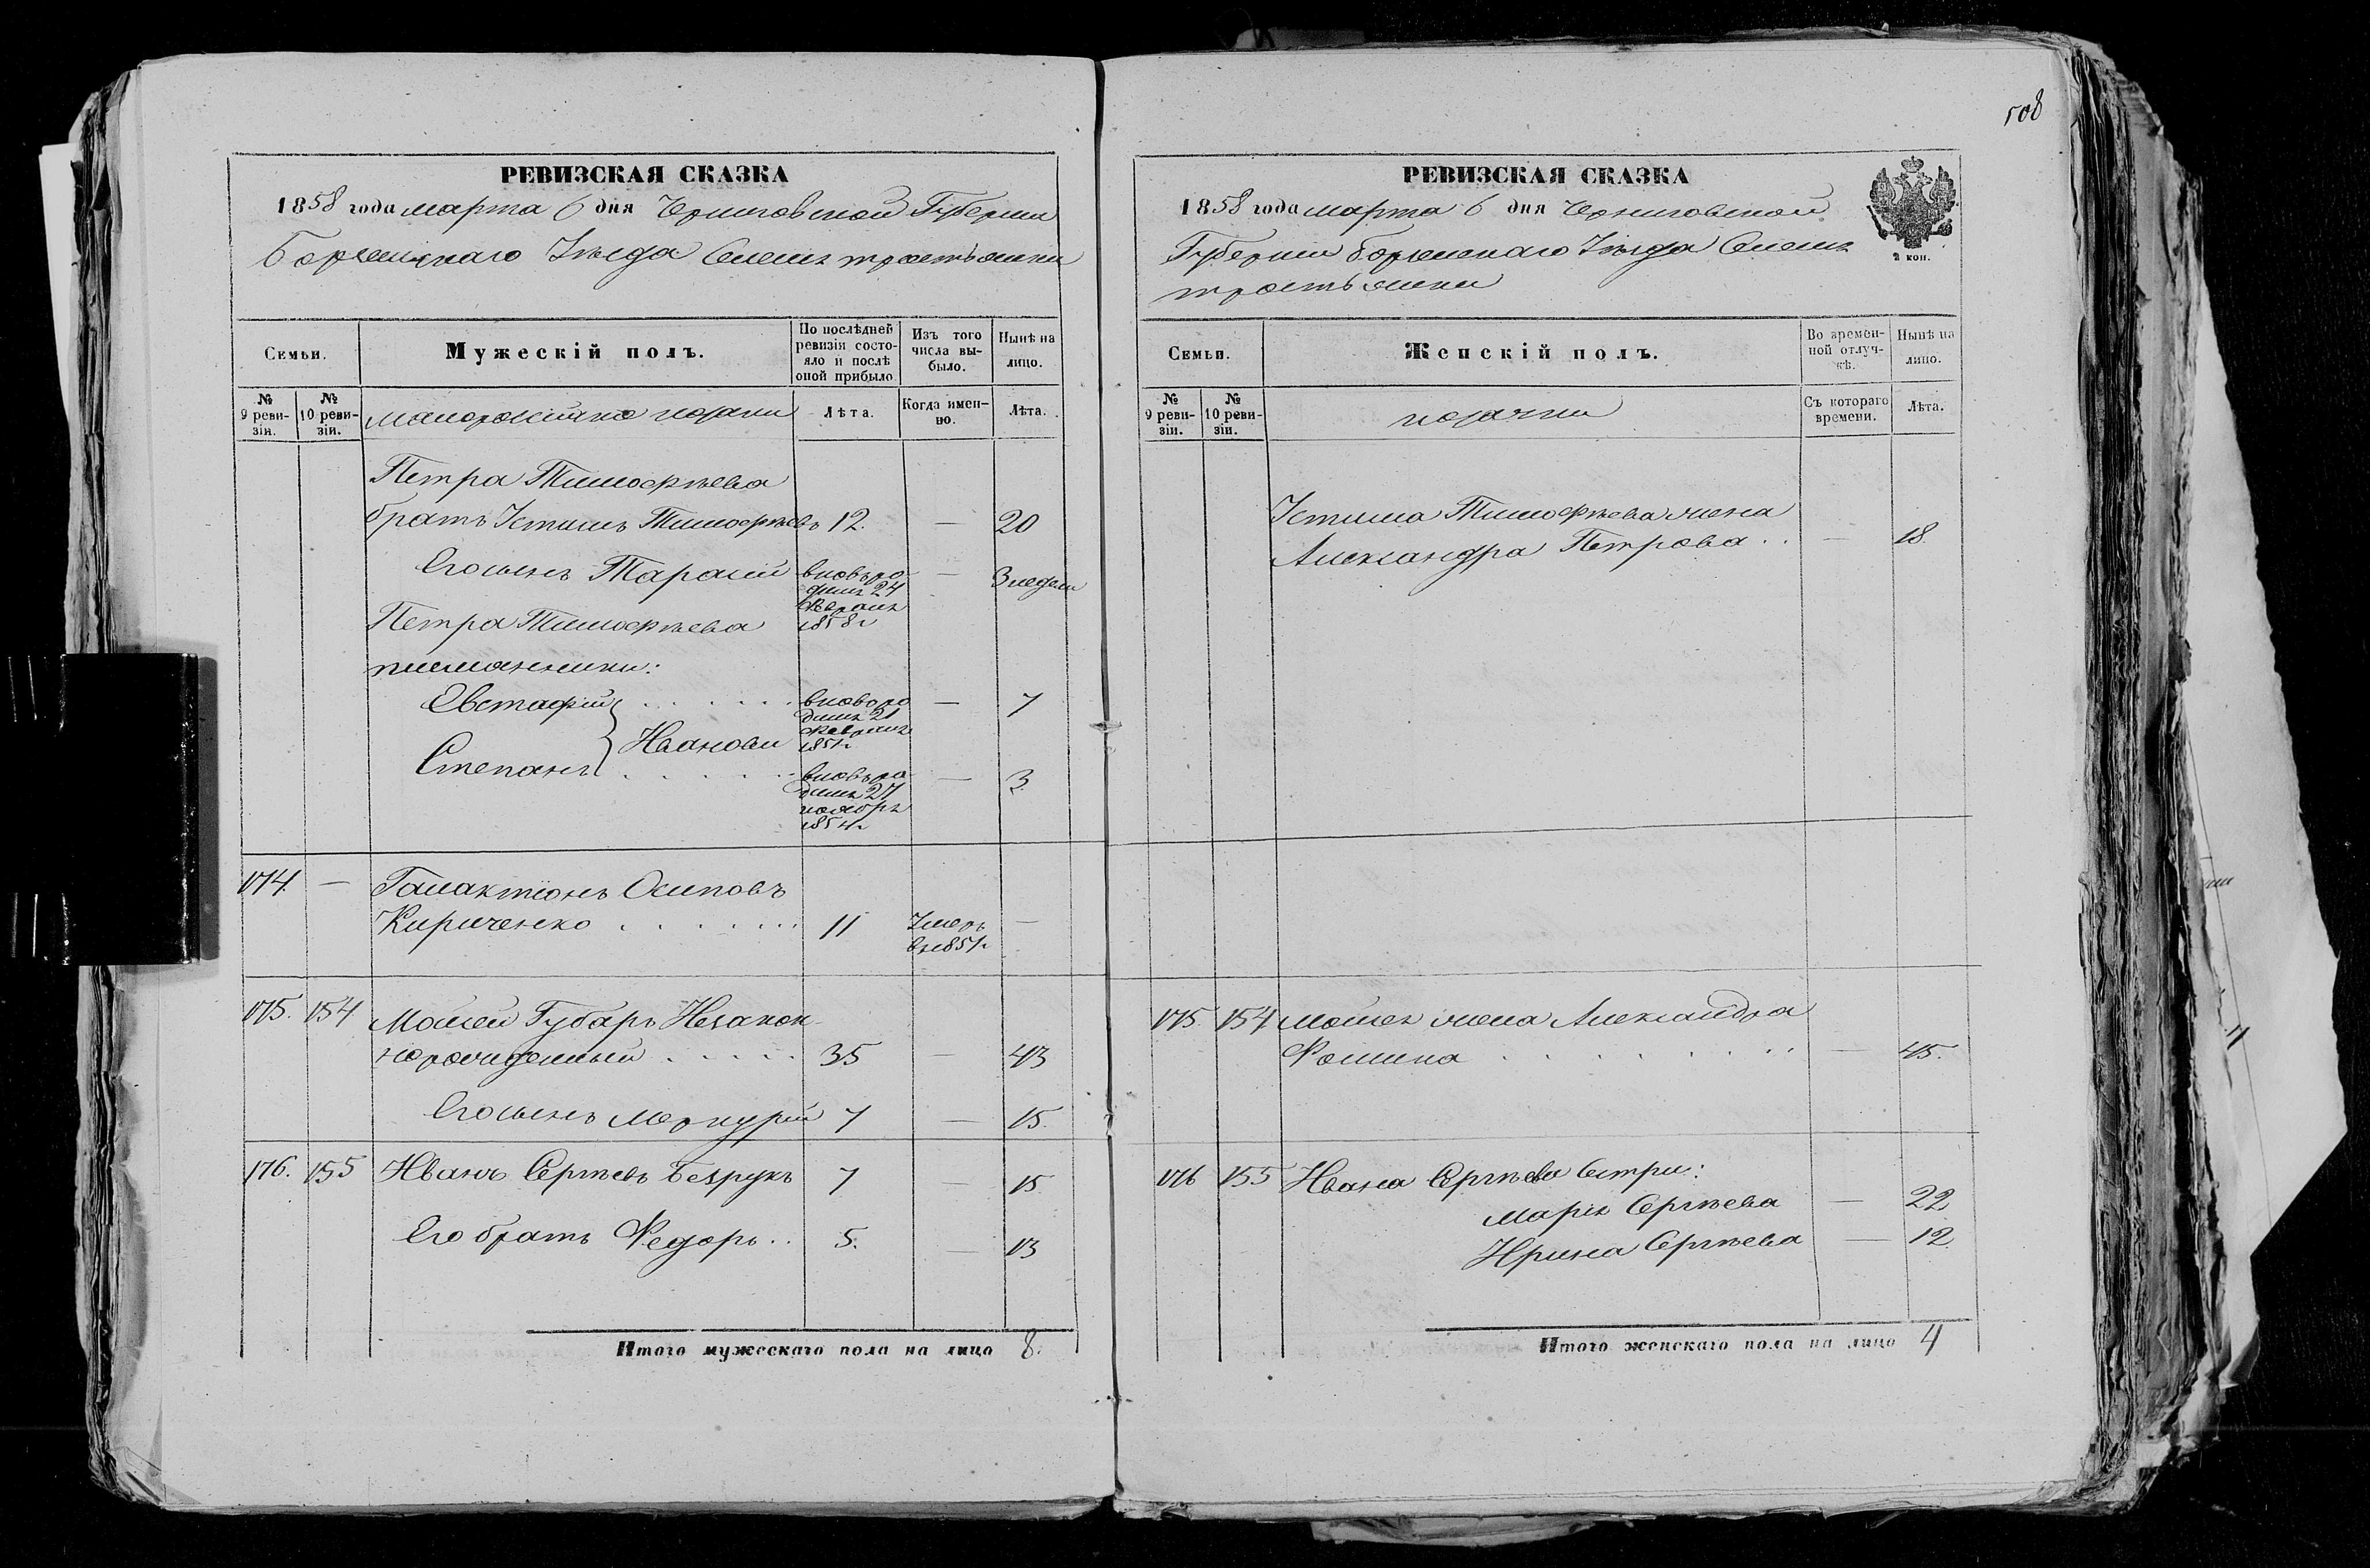 508
РЕВИЗСКАЯ СКАЗКА
1858 года марта 6 дня Черниговской Губернии
Борзенскаго Уѣзда Селенія тростянки
Семьи.
Мужескій полъ.
По послѣдней ревизіи состояло и послѣ оной прибыло
Изъ того числа выбыло.
Нынѣ на лицо.
№ 9 ревизіи.
№ 10 ревизіи.
малороссійскіе козаки
Лѣта.
Когда именно.
Лѣта.
Петра Тимофѣева
братъ Устимъ Тимофѣевъ 12. — 20
Его сынъ Тарасій вновь ро— 3 недели
дил. 24
Февраля
Петра Тимофѣева 1858 г
племянники:
Евстафій . . . . . . вновь ро — 7
дил. 21
Февраля
Ивановы 1851 г
Степанъ . . . . . . вновь ро — 3
дил. 27
ноября
1854 г
174. — Галактіонъ Осиповъ
Кириченко . . . . . . 11 Умеръ —
въ 1851 г
175. 154 Моисей Губарь Незакон
норожденный . . . . . 35 — 43
Его сынъ Меркурій 7 — 15.
176. 155 Иванъ Сергѣевъ Безрукъ 7 — 15
Его братъ Федоръ . . 5. 13
Итого мужескаго пола на лицо 8.
РЕВИЗСКАЯ СКАЗКА
1858 года марта 6 дня Черниговской
Губерніи Борзенскаго Уѣзда Селенія
тростянки
2 коп.
Семьи.
Женскій полъ.
Во времен-
ной отлуч-
кѣ.
Нынѣ на
лицо.
№ 9 ревизіи.
№ 10 ревизіи.
козачки
Съ котораго
времени.
Лѣта.
Устима Тимофѣева жена
Александра Петрова . . — 18
175. 154 Моисея жена Александра
Фомина . . . . . . . — 45.
176 155 Ивана Сергѣева Сестри:
Марія Сергѣева — 22
Ирина Сергѣева — 12.
Итого женскаго пола на лицо 4